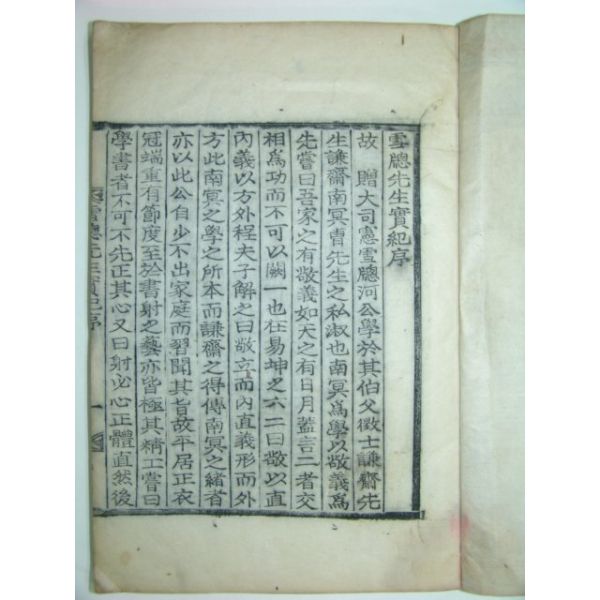 雪牕先生實紀序
故 贈大司憲雪牕河公學於其伯父徵士謙齋先
生謙齋南冥曺先生之私淑也南冥爲學以敬義爲
先嘗曰吾家之有敬義如天之有日月盖言二者交
相爲功而不可以闕一也在易坤之六二曰敬以直
內義以方外程夫子解之曰敬立而內直義形而外
方此南冥之學之所本而謙齋之得傳南冥之緖者
亦以此公自少不出家庭而習聞其旨故平居正衣
冠端重有節度至於書射之藝亦皆極其精工嘗曰
學書者不可不先正其心又曰射必心正體直然後
雪牕先生實紀序
一